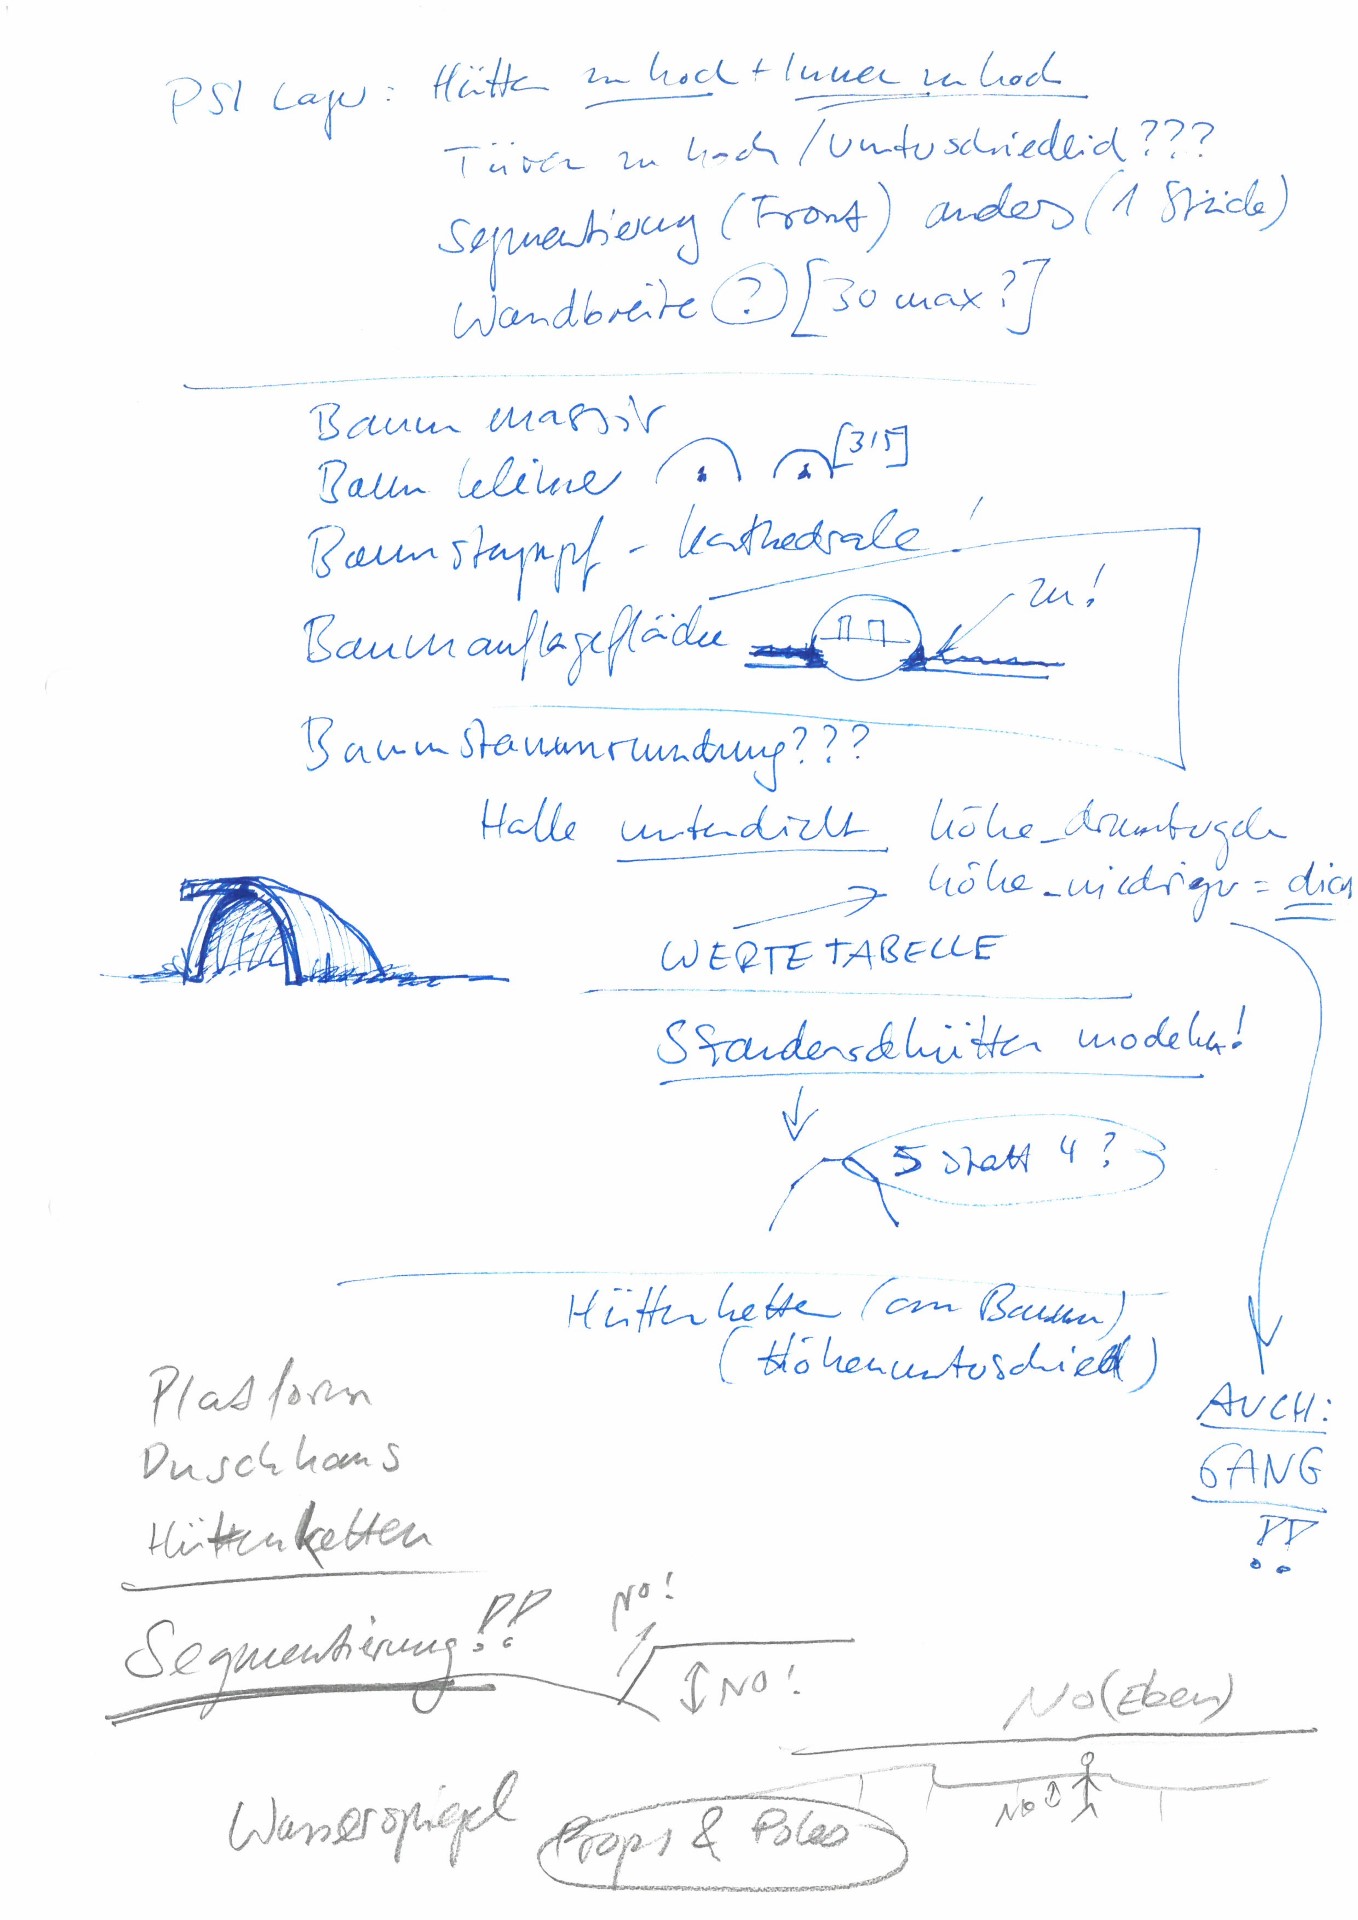 PSI Lager: Hütten zu hoch + Innen zu hoch
Türen zu hoch / unterschiedlich???
Segmentierung (Front) anders (1 Stück)
Wandbreite ? [30 max?]
Baum massiv
Baum kleiner [3/5]
Baumstumpf - Kathedrale!
Baumauflagefläche
zu!
Baumstammrundung???
Halle unterdicht höhe_
höhe_niedriger = dicht
WERTETABELLE
Standardhütten modeln!
5 statt 4?
Hüttenkette (am Baum)
(Höhenunterschied)
AUCH:
GANG
!!
Platform
Duschhaus
Hüttenketten
Segmentierung!!
NO!
NO!
NO (Eben)
NO
Wasserspiegel
Props & Poles